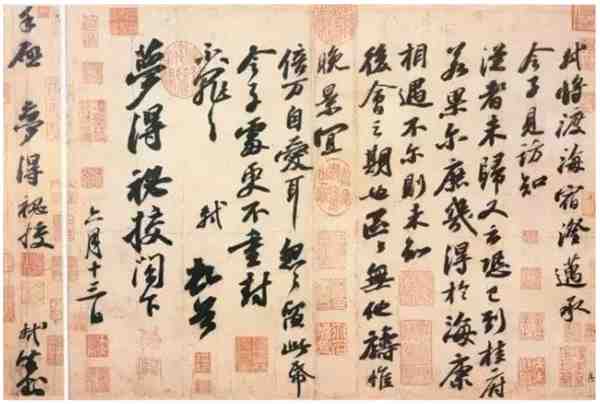 軾將渡海宿澄邁承
令子見訪知
從者未歸又云恐已到桂府
若果尔庶幾得於海康
相遇不尔則未知
後會之期也區〃無他禱惟
晚景宜
倍万自愛耳怱〃留此帋
令子處更不重封
不罪〃
軾 頓首
夢得祕校閣下
六月十三日
手啟 夢得祕校 軾封